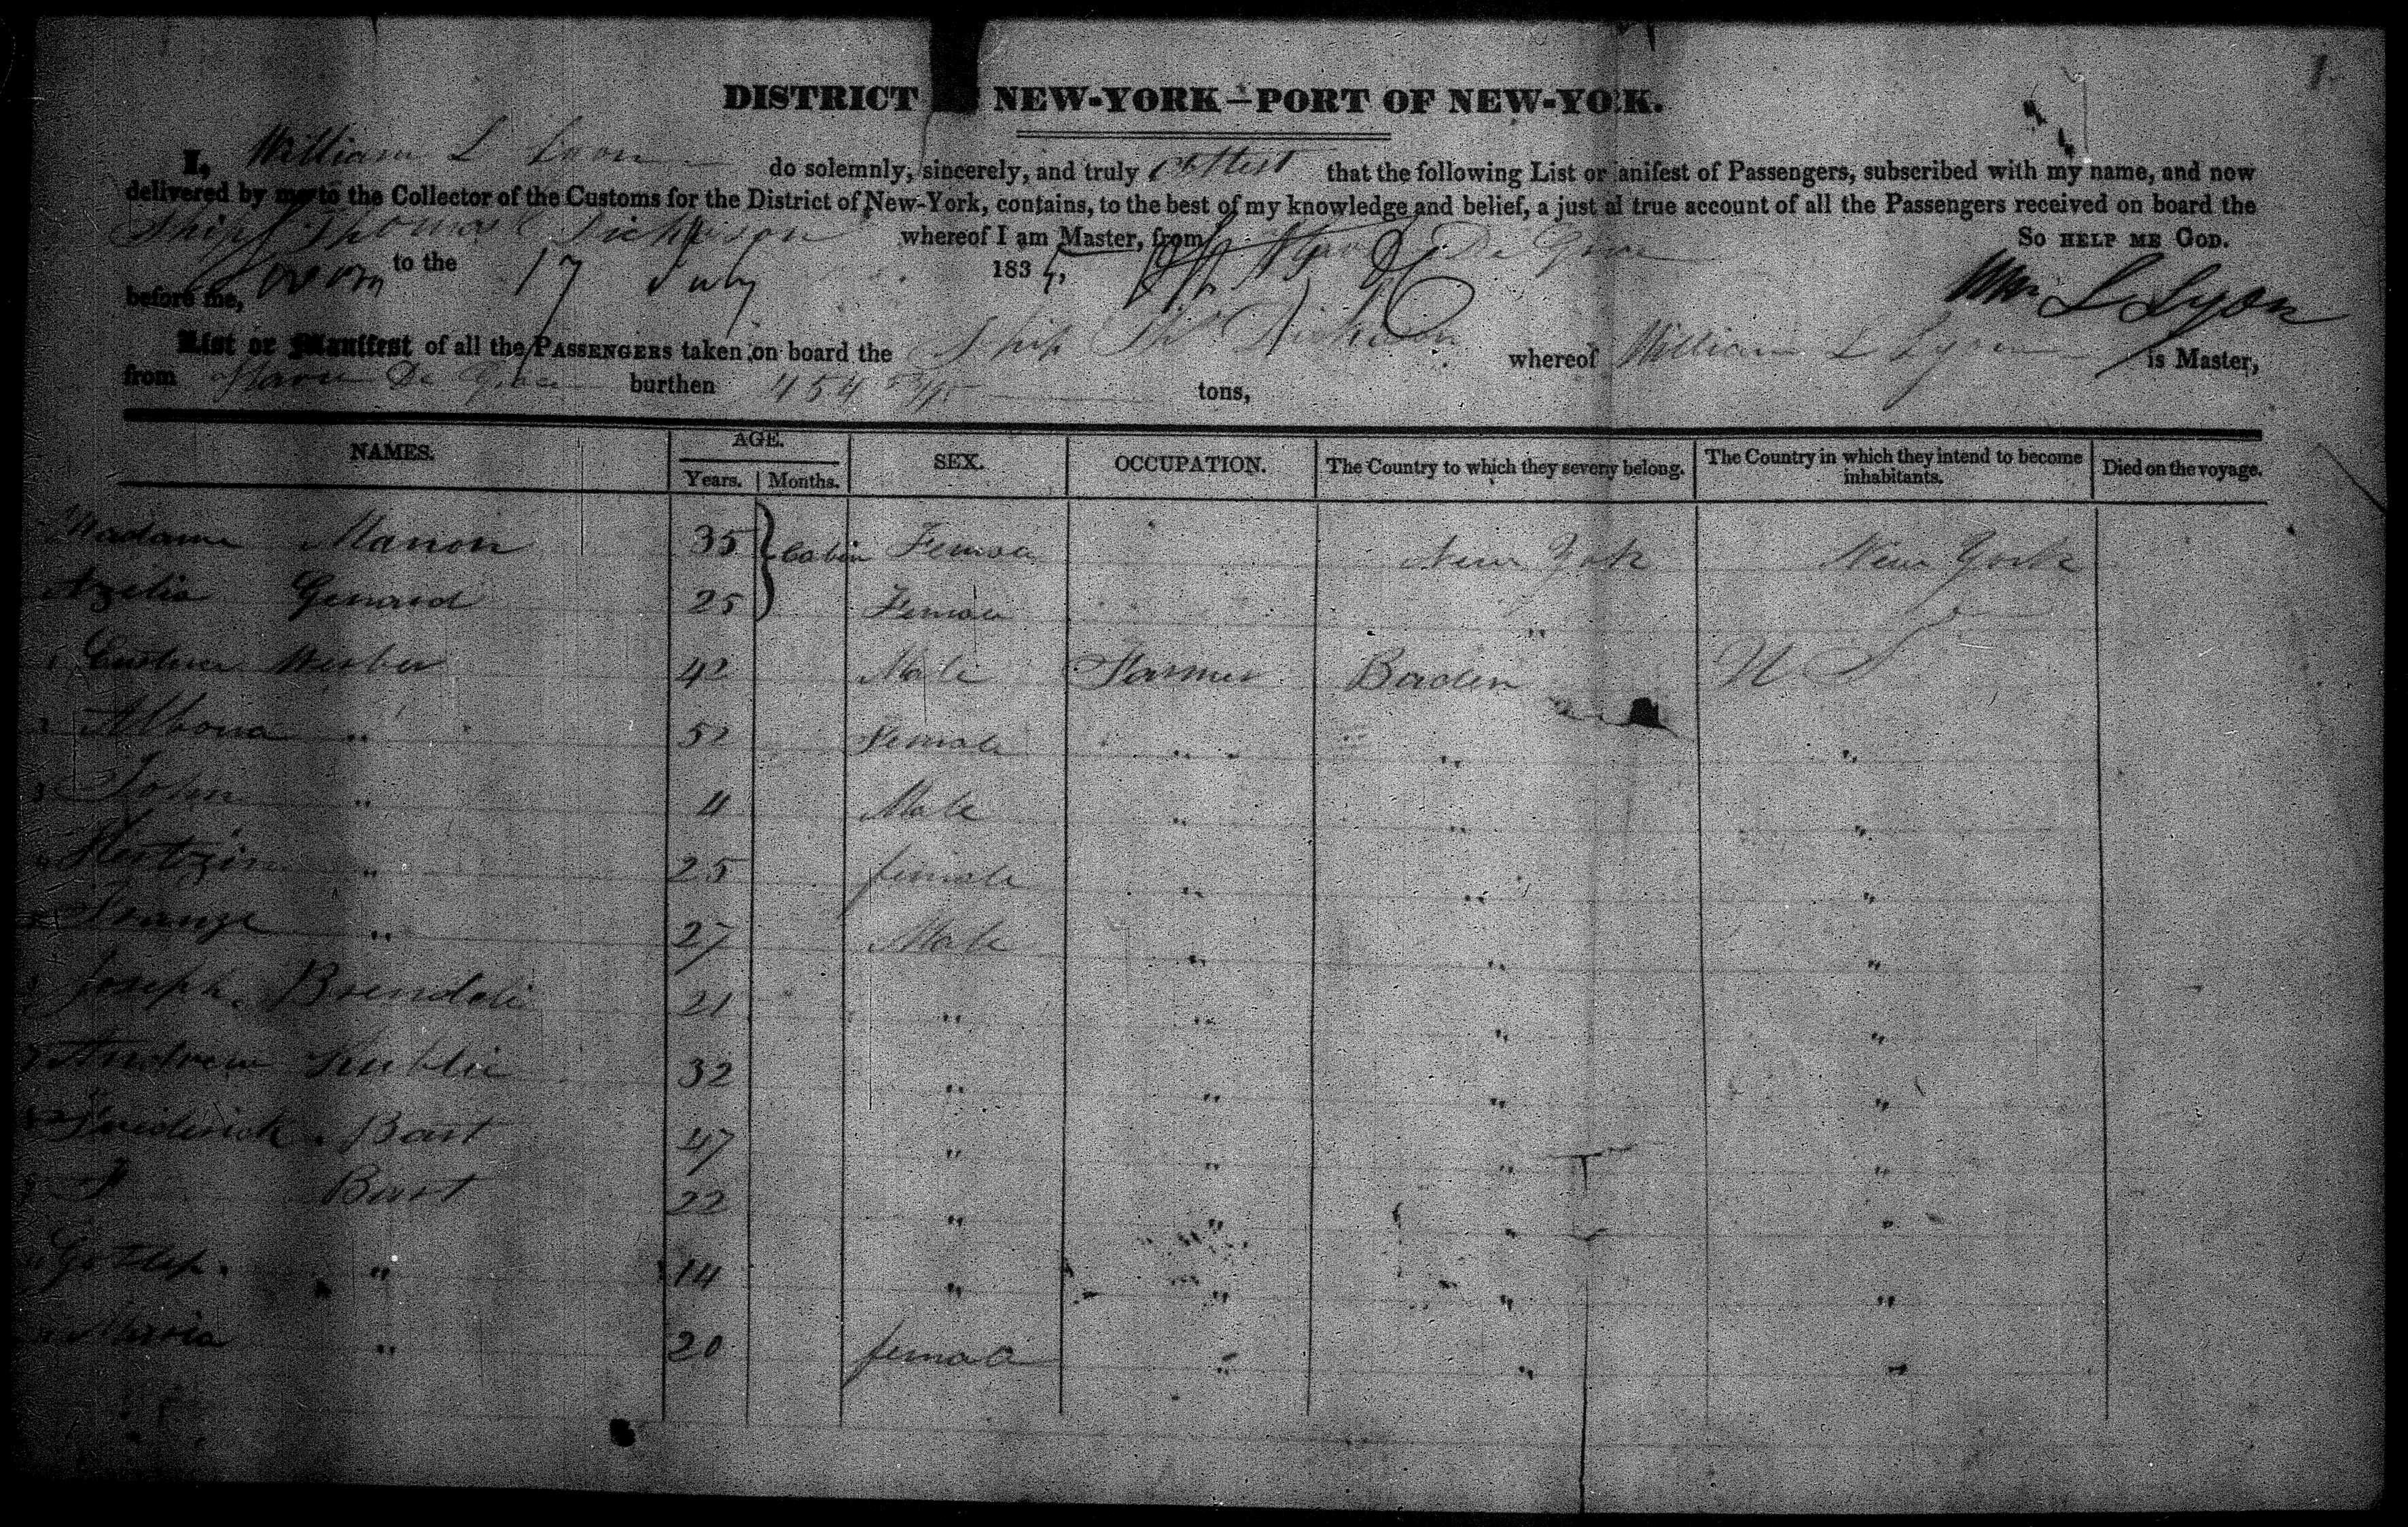 1
DISTRICT NEW-YORK—PORT OF NEW-YO K.
I, William L Lyon do solemnly, sincerely, and truly attest that the following List or anifest of Passengers, subscribed with my name, and now
delivered by me to the Collector of the Customs for the District of New-York, contains, to the best of my knowledge and belief, a just a true account of all the Passengers received on board the
Ship Thomas Dickison whereof I am Master, from Havre De Grace So HELP ME GOD.
Sworn to the 17 July 183
before me, Wm L Lyon
List or Manifest of all the PASSENGERS taken on board the Ship Ths Dickison whereof William L Lyon is Master,
from Havre De Grace burthen 454 tons,
NAMES. AGE. SEX. OCCUPATION. The Country to which they severly belong. The Country in which they intend to become inhabitants. Died on the voyage.
Years. Months.
Madame Manon 35 Cabin Female New York New York
Azelia 25 Female "
1 Weber 42 Male Farmer Baden U S
2 " 52 Female " " "
3 John " 11 Male " " "
4 " 25 female " " "
5 Franze " 27 Male " " "
Joseph 21 " " " "
7 Andrew 32 " " " "
Friederick Bast 47 " " " "
9 F Bast 22 " " " "
Gotlep " 14 " " " "
Maria " 20 female " " "